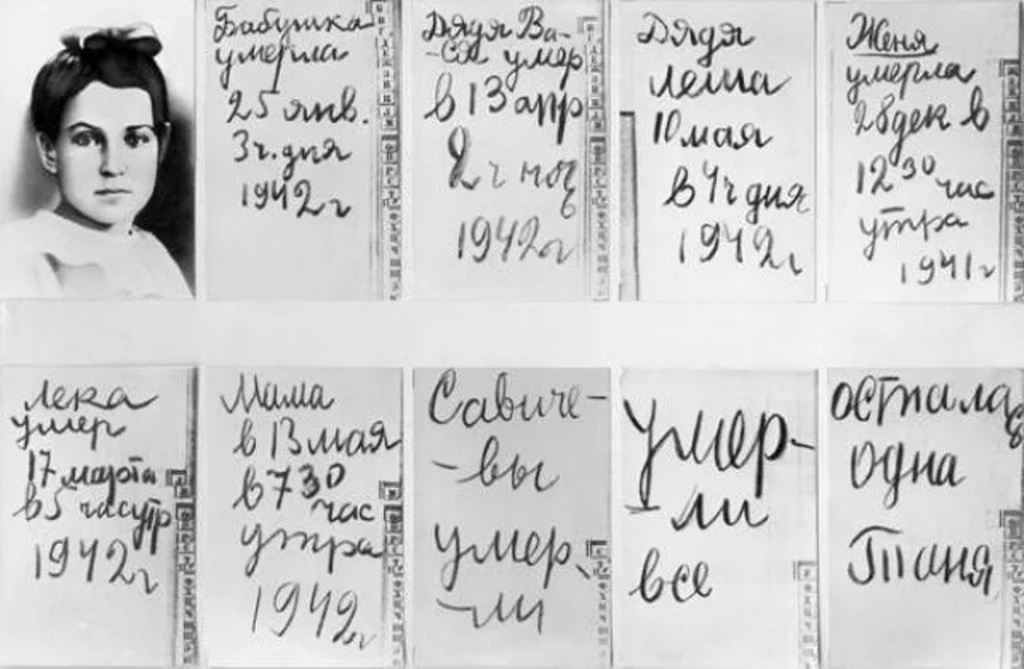 Бабушка
умерла
25 янв.
3ч. дня
1942 г
Дядя Ва-
-ся умер
в 13 апр
2 ч ноч
1942 г
Дядя
Леша
10 мая
в 4 ч дня
1942 г
Женя
умерла
28 дек в
12 30 час
утра
1941 г
Лека
умер
17 марта
в 5 час утр
1942 г
Мама
в 13 мая
в 7 30
час
утра
1942 г
Савиче-
-вы
умер-
-ли
умер-
-ли
все
осталась
одна
Таня